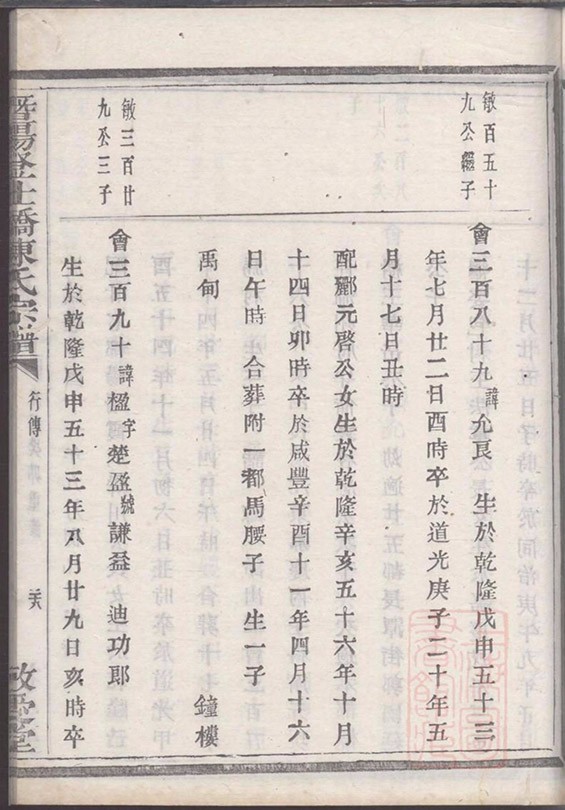 敏百五十
九公繼子
會三百八十九諱允良　生於乾隆戊申五十三
年七月廿二日酉時卒於道光庚子二十年五
月十七日丑時
配酈元啓公女生於乾隆辛亥五十六年十月
十四日卯時卒於咸豐辛酉十一年四月十六
日午時合葬附一都馬腰子　生一子
禹甸　鐘樓
敏三百廿
九公三子
會三百九十諱楹字楚盈號謙益　迪功郎
生於乾隆戊申五十三年八月廿九日亥時卒
暨陽登仕橋陳氏宗譜
行傳
敬愛堂